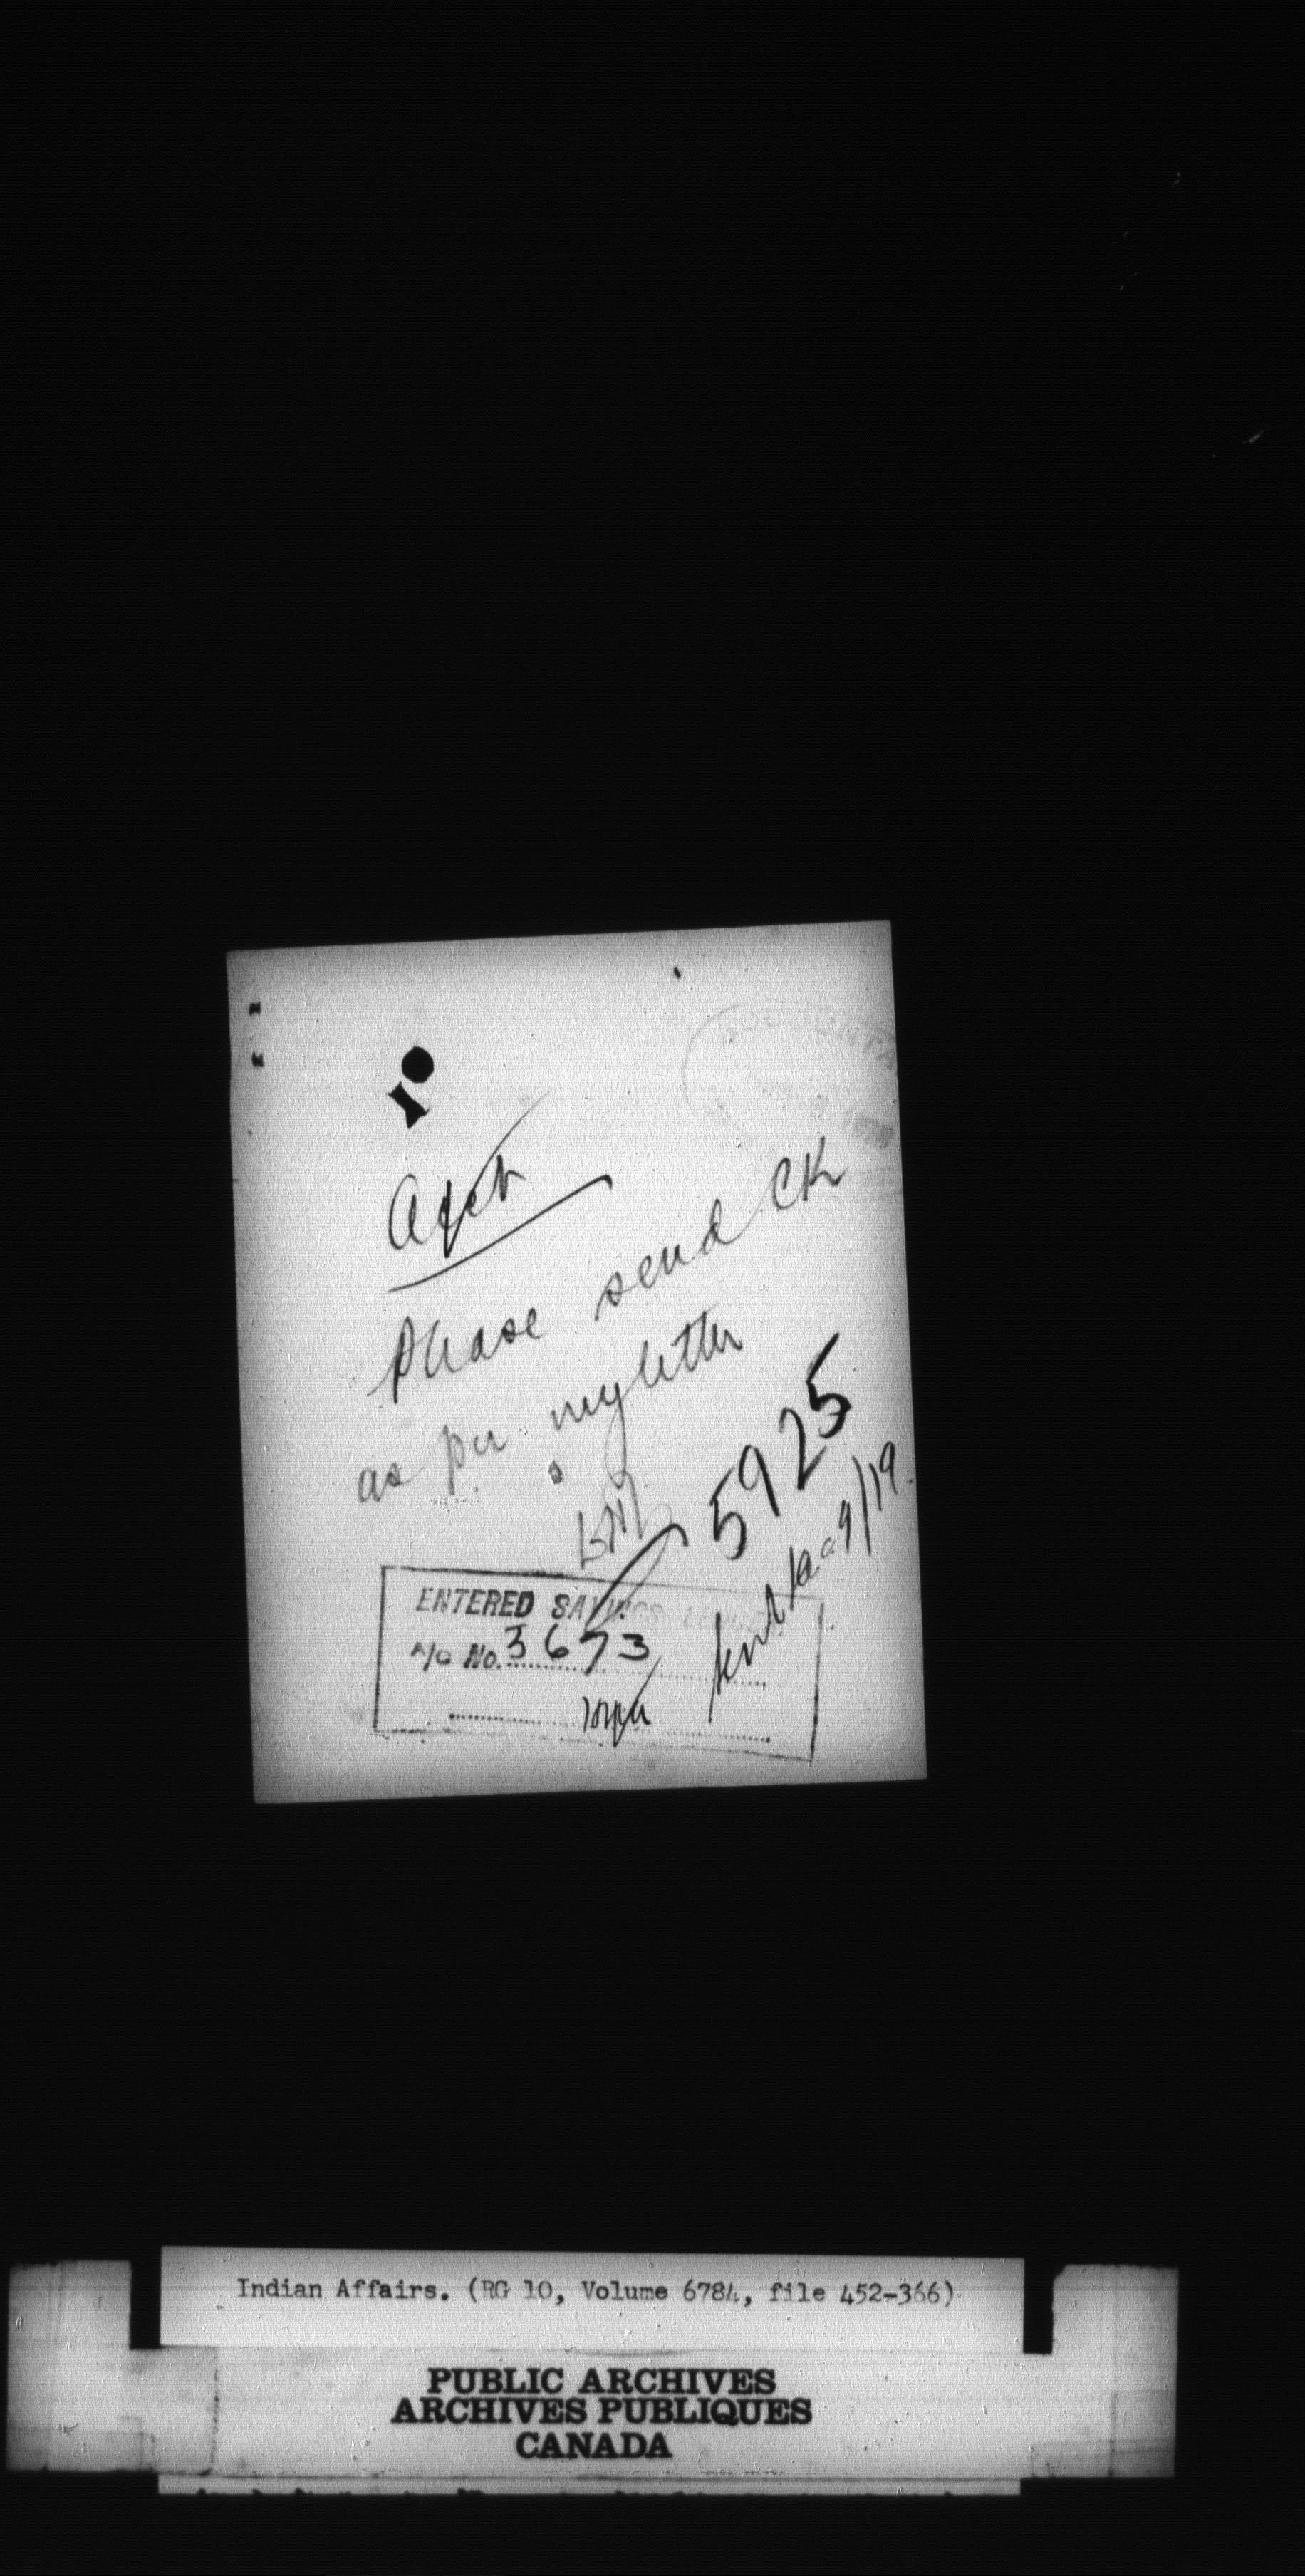 Acct
Please send ck
as per my letter
5925
ENTERED SAVINGS LEDGER
A/C No. 3673
Indian Affairs. (RG 10, Volume 6784, file 452-366)
PUBLIC ARCHIVES
ARCHIVES PUBLIQUES
CANADA